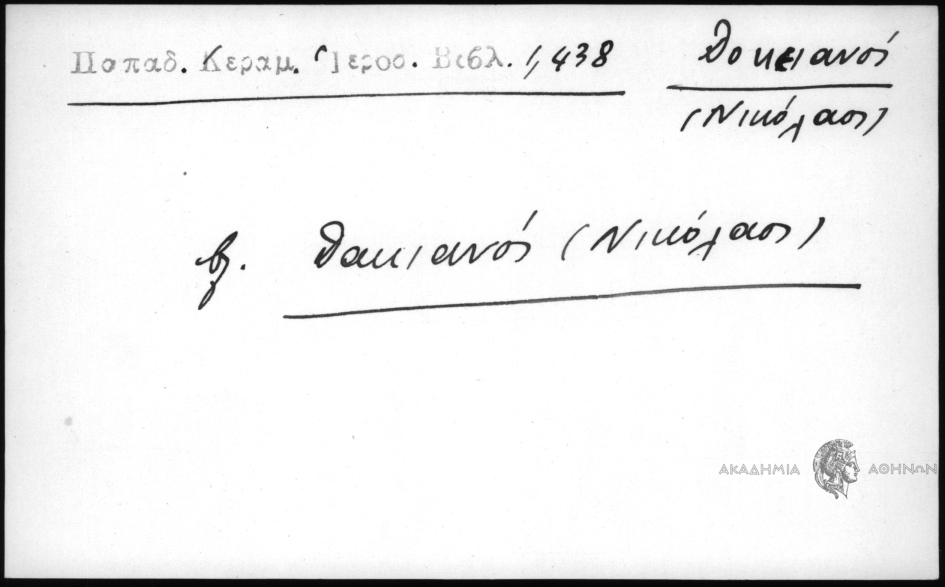 Παπαδ. Κεραμ. Ἱεροσ. Βιβλ. 1,438 Δοκειανός
(Νικόλαος)
βλ. Δακιανός (Νικόλαος)
ΑΚΑΔΗΜΙΑ ΑΘΗΝΩΝ